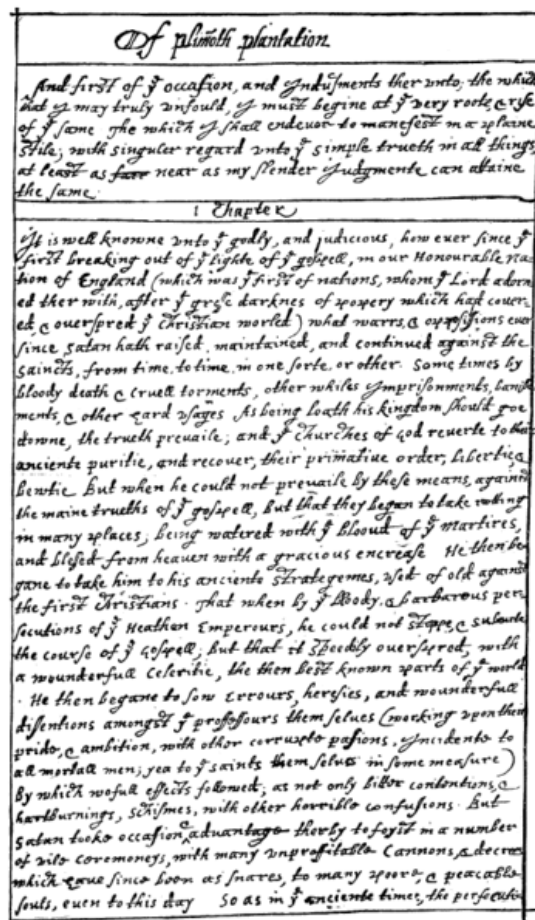 Of plimoth plantation
And first of yᵉ occasion, and Indusments ther unto; the which
that I may truly unfould, I must begine at yᵉ very roote & rise
of yᵉ same The which I shall endevor to manefest in a plaine
stile; with singuler regard unto yᵉ simple trueth in all things,
at least as far near as my slender Judgmente can attaine
the same.
1 Chapter
It is well knowne unto yᵉ godly, and judicious, how ever since yᵉ
first breaking out of yᵉ lighte of yᵉ gospell, in our Honourable Na-
tion of England (which was yᵉ first of nations, whom yᵉ Lord adorn-
ed ther with, after yᵉ grosse darknes of popery which had cover-
ed & overspred yᵉ Christian worled) what warrs, & oppositions ever
since Satan hath raised, maintained, and continued against the
saincts, from time, to time, in one sorte, or other. Some times by
bloody death & cruell torments, other whiles Imprisonments, banish-
ments, & other hard usages As being loath his kingdom should goe
downe, the trueth prevaile; and yᵉ Churches of God reverte to their
anciente puritie, and recover, their primative order, libertie, &
bewtie But when he could not prevaile by these means, against
the maine trueths of yᵉ gospell, but that they began to take rotting
in many places; being watered with yᵉ bloud of yᵉ martires,
and blesed from heaven with a gracious encrease He then be-
gane to take him to his anciente strategemes, used of old against
the first Christians. That when by yᵉ bloody, & barbarous per-
secutions of yᵉ Heathen Emperours, he could not stoppe, & subverte
the course of yᵉ Gospell; but that it speedily overspred, with
a wounderfull Celeritie, the then best known parts of yᵉ world
He then begane to sow Errours, heresies, and wounderfull
dissentions amongst yᵉ proffessours them selves (working upon their
pride, & ambition, with other corrupte passions, Incidente to
all mortall men; yea to yᵉ saints them selves in some measure)
By which wofull effects followed; as not only bitter contentions, &
hartburnings, schismes, with other horrible confusions. But
Satan tooke occasion & advantage therby to foyst in a number
of vile ceremoneys, with many unproffitable Cannons, & decrees
which have since been as snares, to many poore, & peacable
souls, even to this day So as in yᵉ anciente times, the persecutio